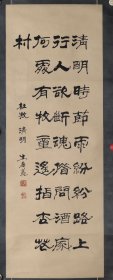 清明時節雨紛紛路上
行人欲斷魂借問酒家
何處有牧童遙指杏花
村
杜牧 清明